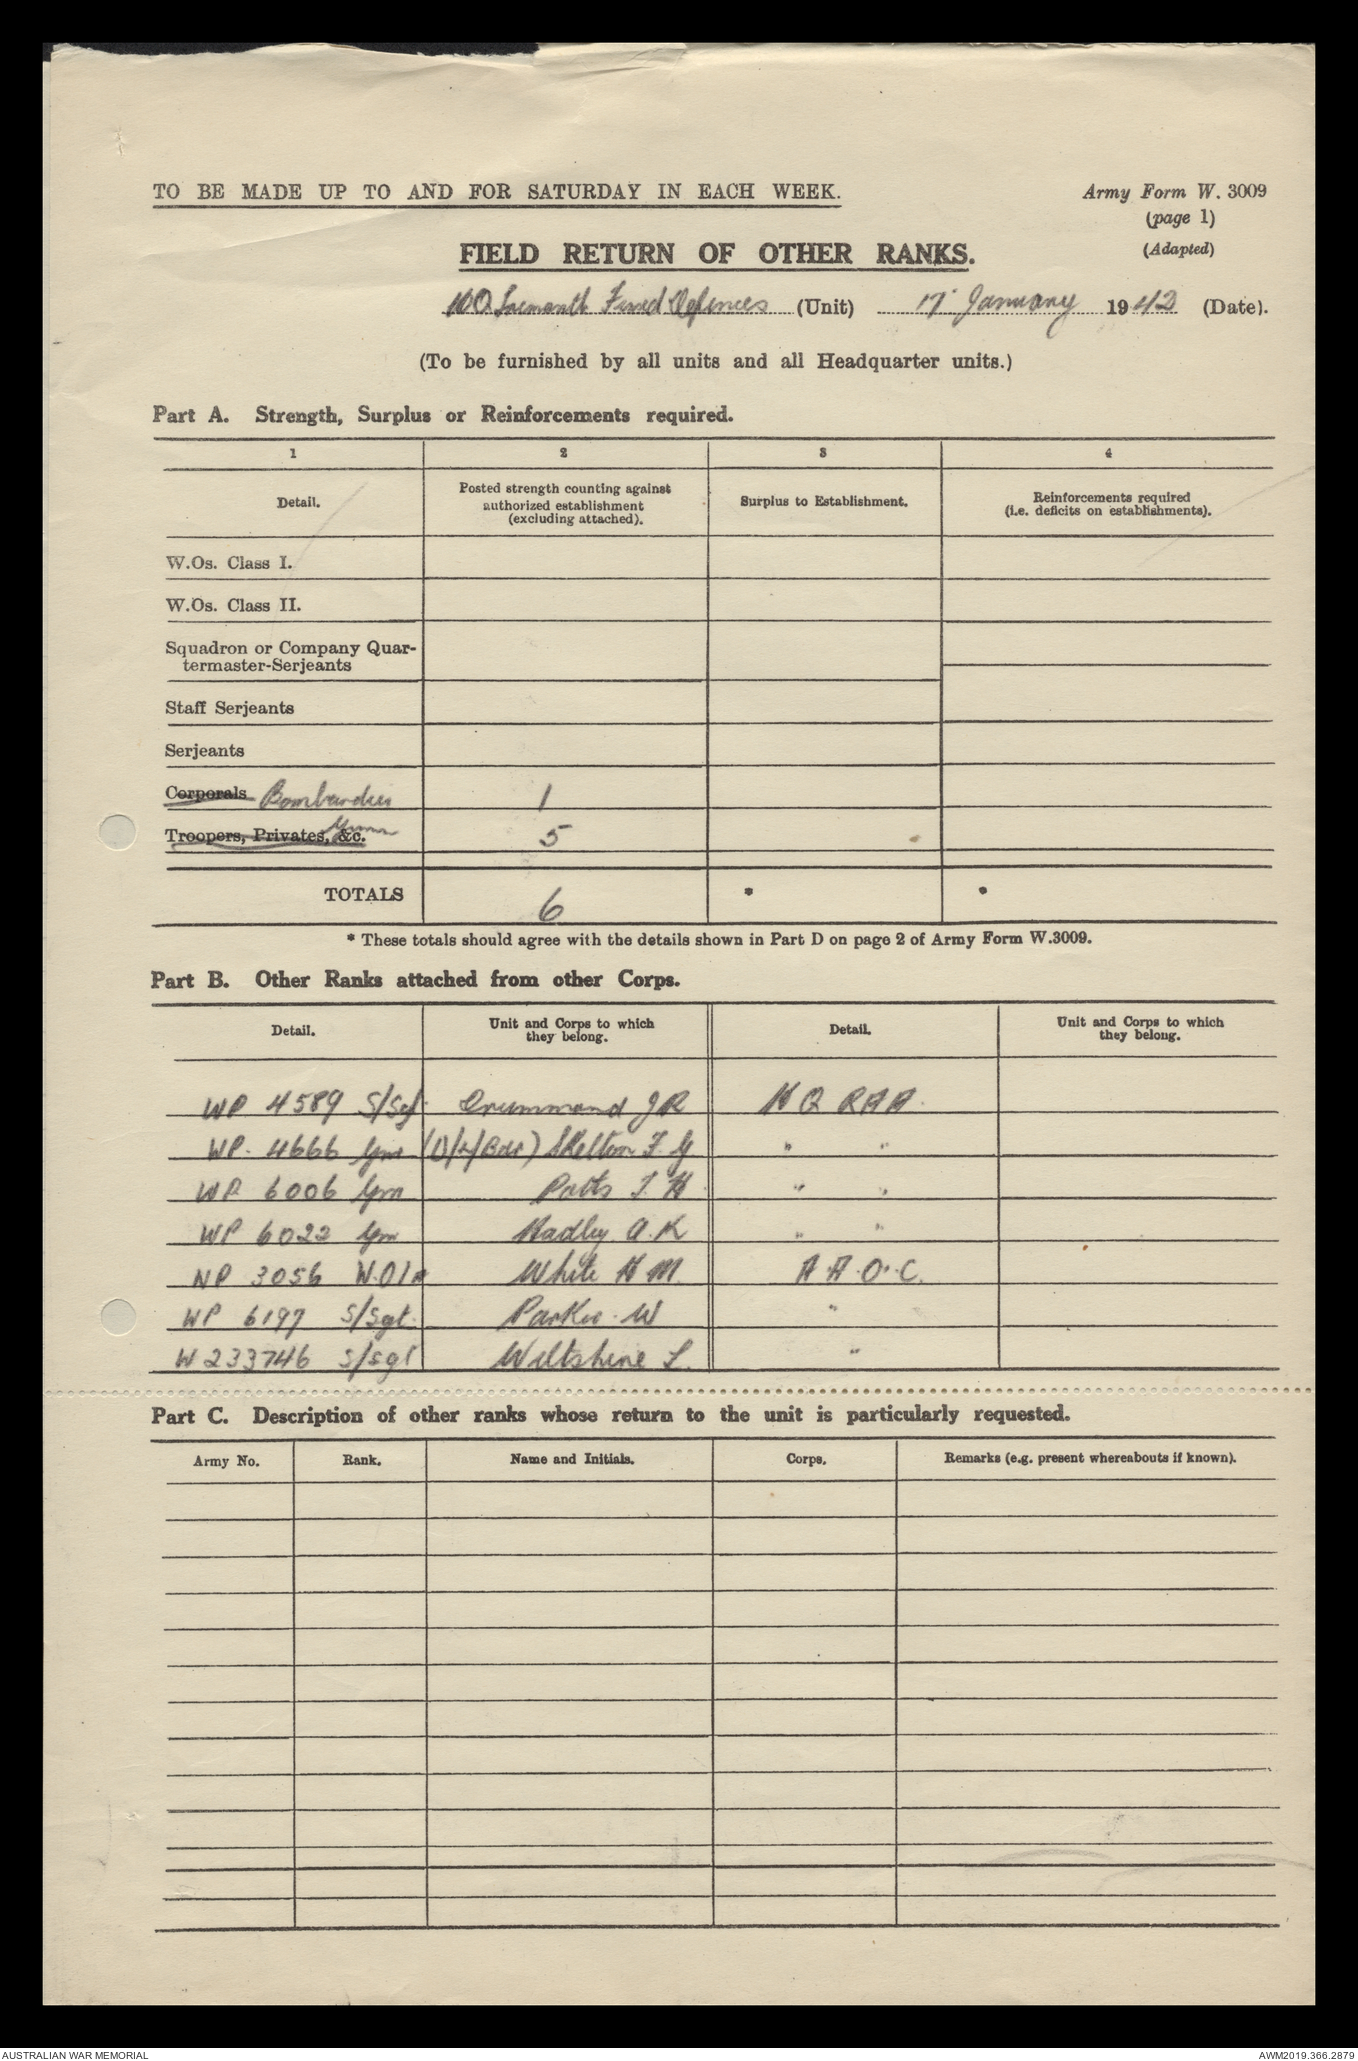 TO BE MADE UP TO AND FOR SATURDAY IN EACH WEEK.
Army Form W. 3009
(page 1)
(Adapted)
FIELD RETURN OF OTHER RANKS.
HQ Fremantle Fixed Defences (Unit) 17 January 1942 (Date).
(To be furnished by all units and all Headquarter units.)
Part A. Strength, Surplus or Reinforcements required.
1 2 3 4
Detail. Posted strength counting against authorized establishment (excluding attached). Surplus to Establishment. Reinforcements required (i.e. deficits on establishments).
W.Os. Class I.
W.Os. Class II.
Squadron or Company Quar-
termaster-Serjeants
Staff Serjeants
Serjeants
Corporals Bombardier 1
Troopers, Privates, &c. Gnr 5
TOTALS 6 * *
* These totals should agree with the details shown in Part D on page 2 of Army Form W.3009.
Part B. Other Ranks attached from other Corps.
Detail. Unit and Corps to which they belong. Detail. Unit and Corps to which they belong.
WP 4589 S/Sgt Drummond J R H Q RAA
WP. 4666 Gnr (D/L/Bdr) Skelton F. G " "
WP 6006 Gnr Potts J. H " "
WP 6022 Gnr Hadley A. K " "
NP 3056 W.O.1 White H M A.A.O.C.
WP 6197 S/Sgt. Parker W "
W233746 S/Sgt Wiltshire L. "
Part C. Description of other ranks whose return to the unit is particularly requested.
Army No. Rank. Name and Initials. Corps. Remarks (e.g. present whereabouts if known).
AUSTRALIAN WAR MEMORIAL
AWM2019.366.2879